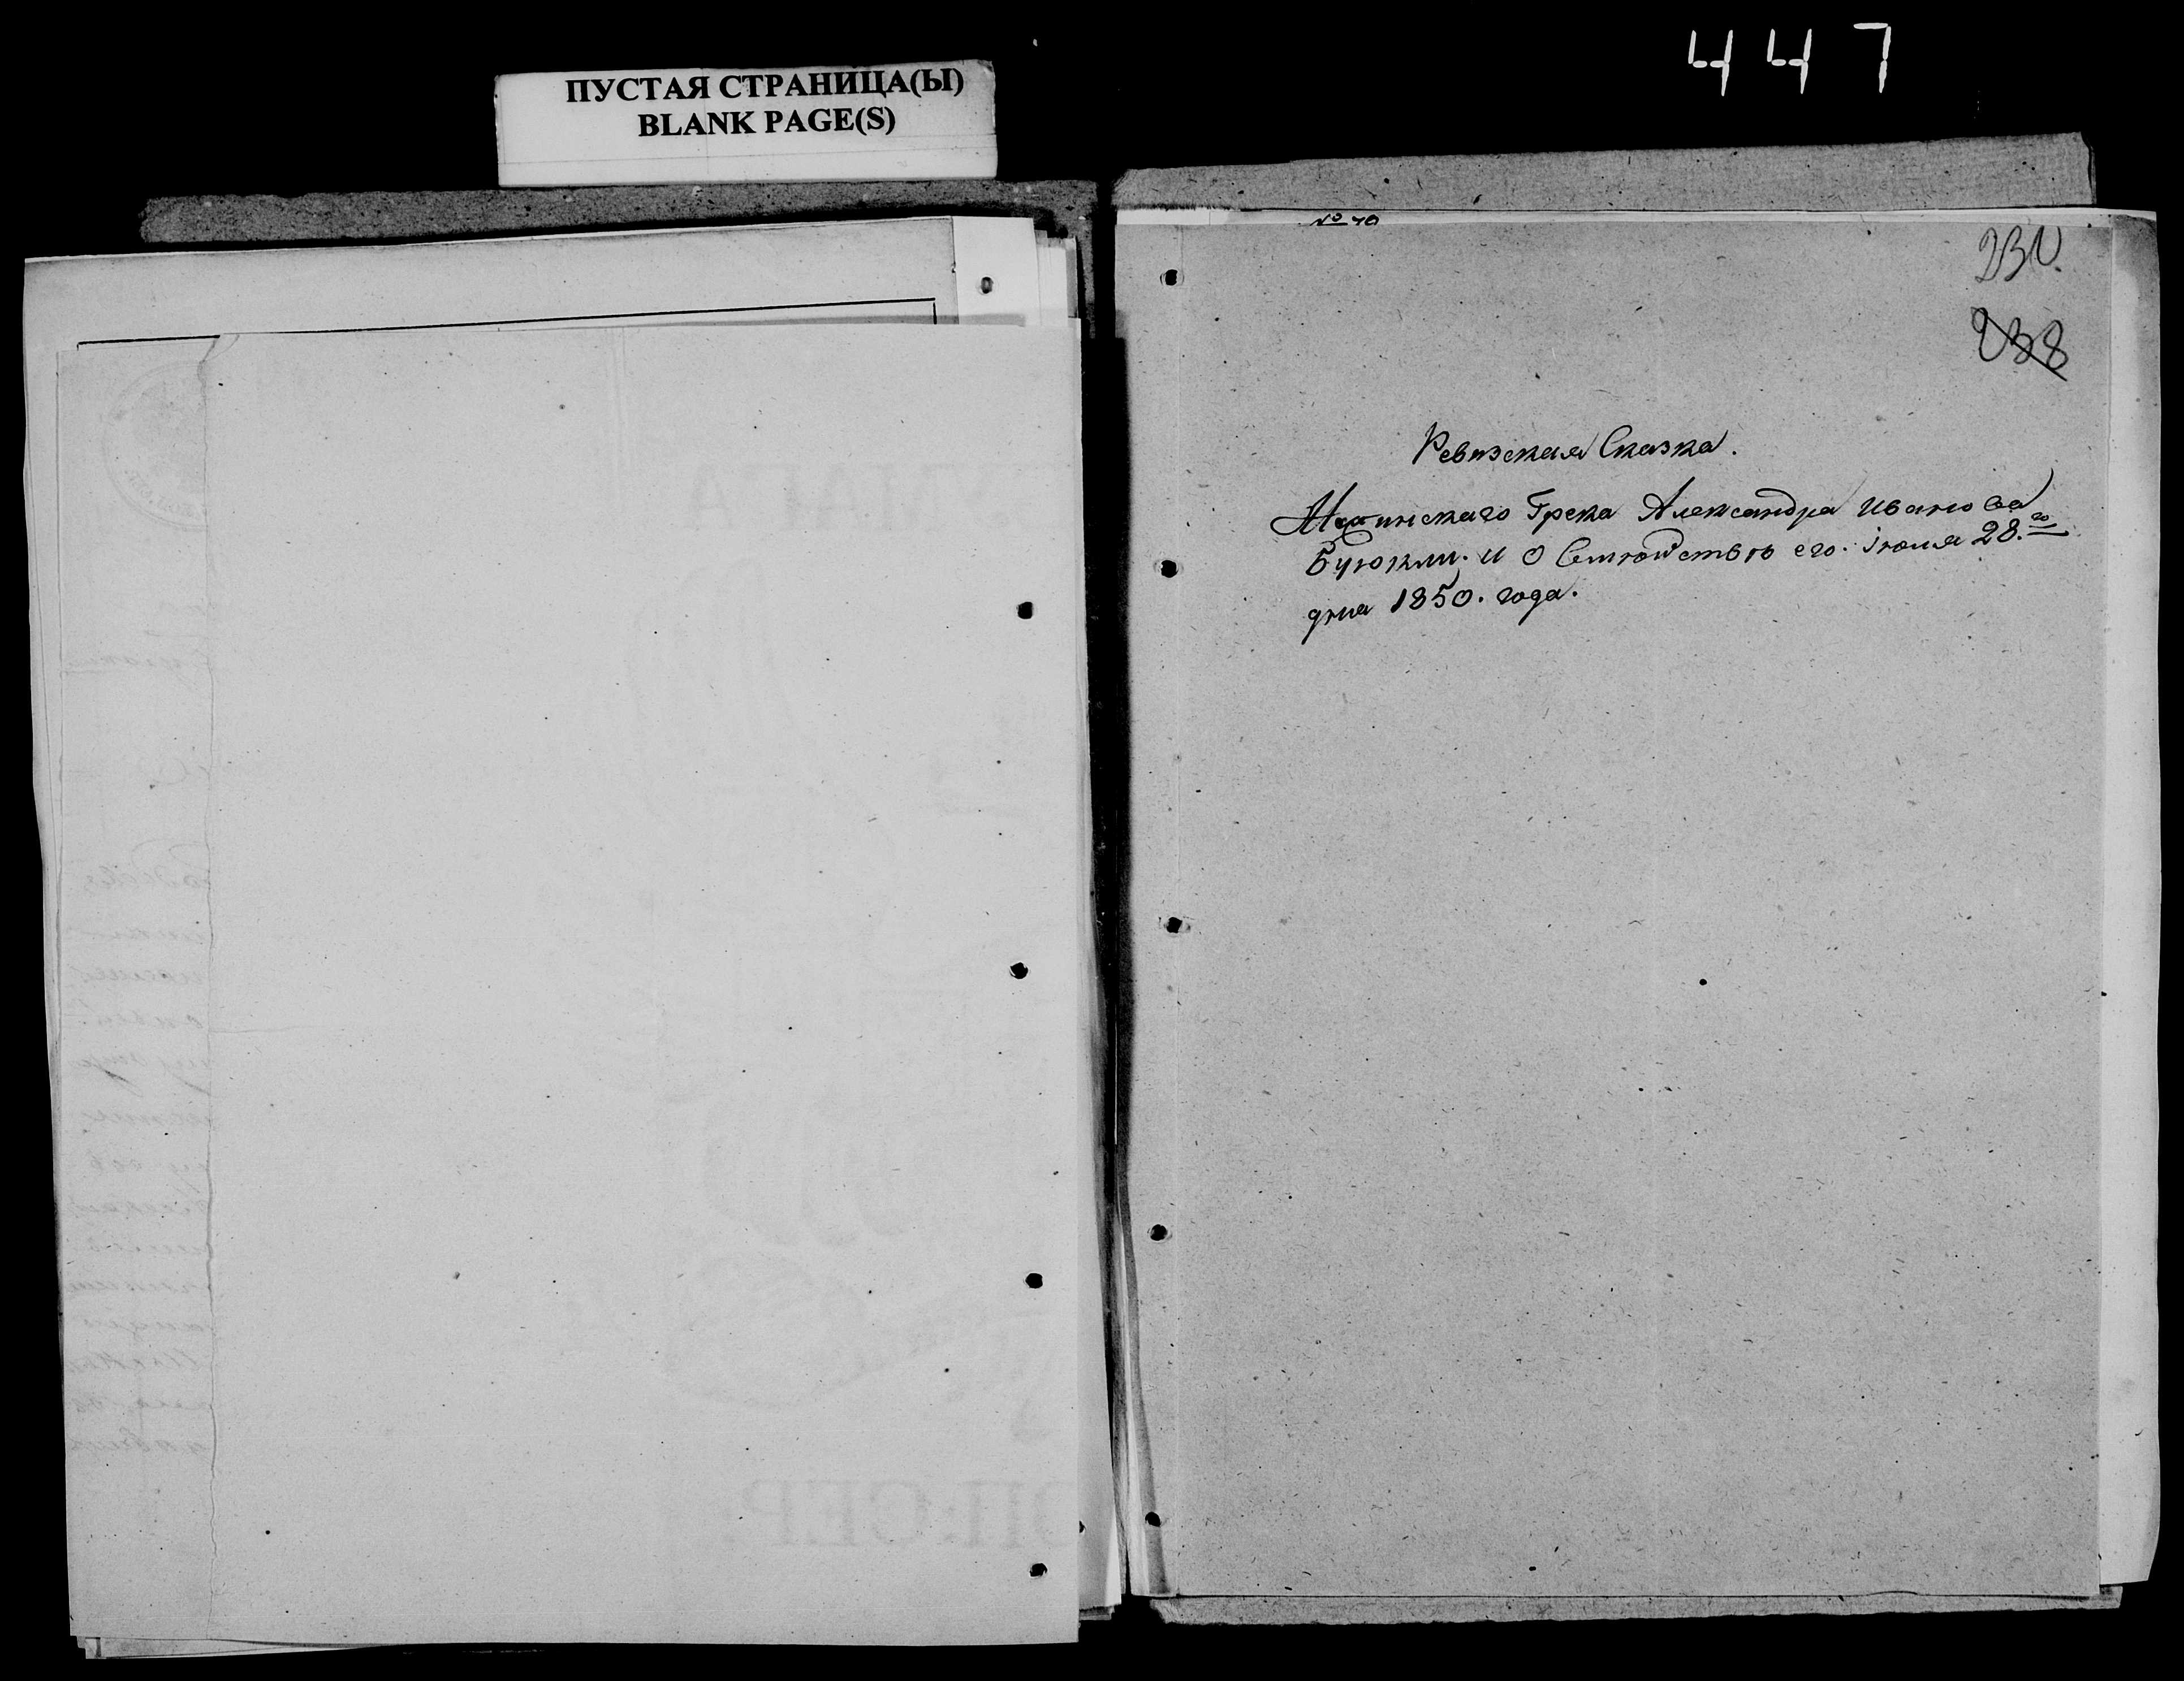 447
ПУСТАЯ СТРАНИЦА(Ы)
BLANK PAGE(S)
№ 40
238
Ревизская Сказка.
Нѣжинскаго Грека Александра Иванова
Буюкли. и о Семействѣ его. Iюля 28.го
дня 1850. года.